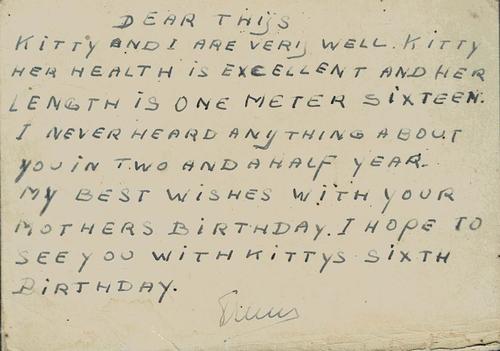 DEAR THIJS
KITTY AND I ARE VERY WELL. KITTY
HER HEALTH IS EXCELLENT AND HER
LENGTH IS ONE METER SIXTEEN.
I NEVER HEARD ANYTHING ABOUT
YOU IN TWO AND A HALF YEAR.
MY BEST WISHES WITH YOUR
MOTHERS BIRTHDAY. I HOPE TO
SEE YOU WITH KITTYS SIXTH
BIRTHDAY.